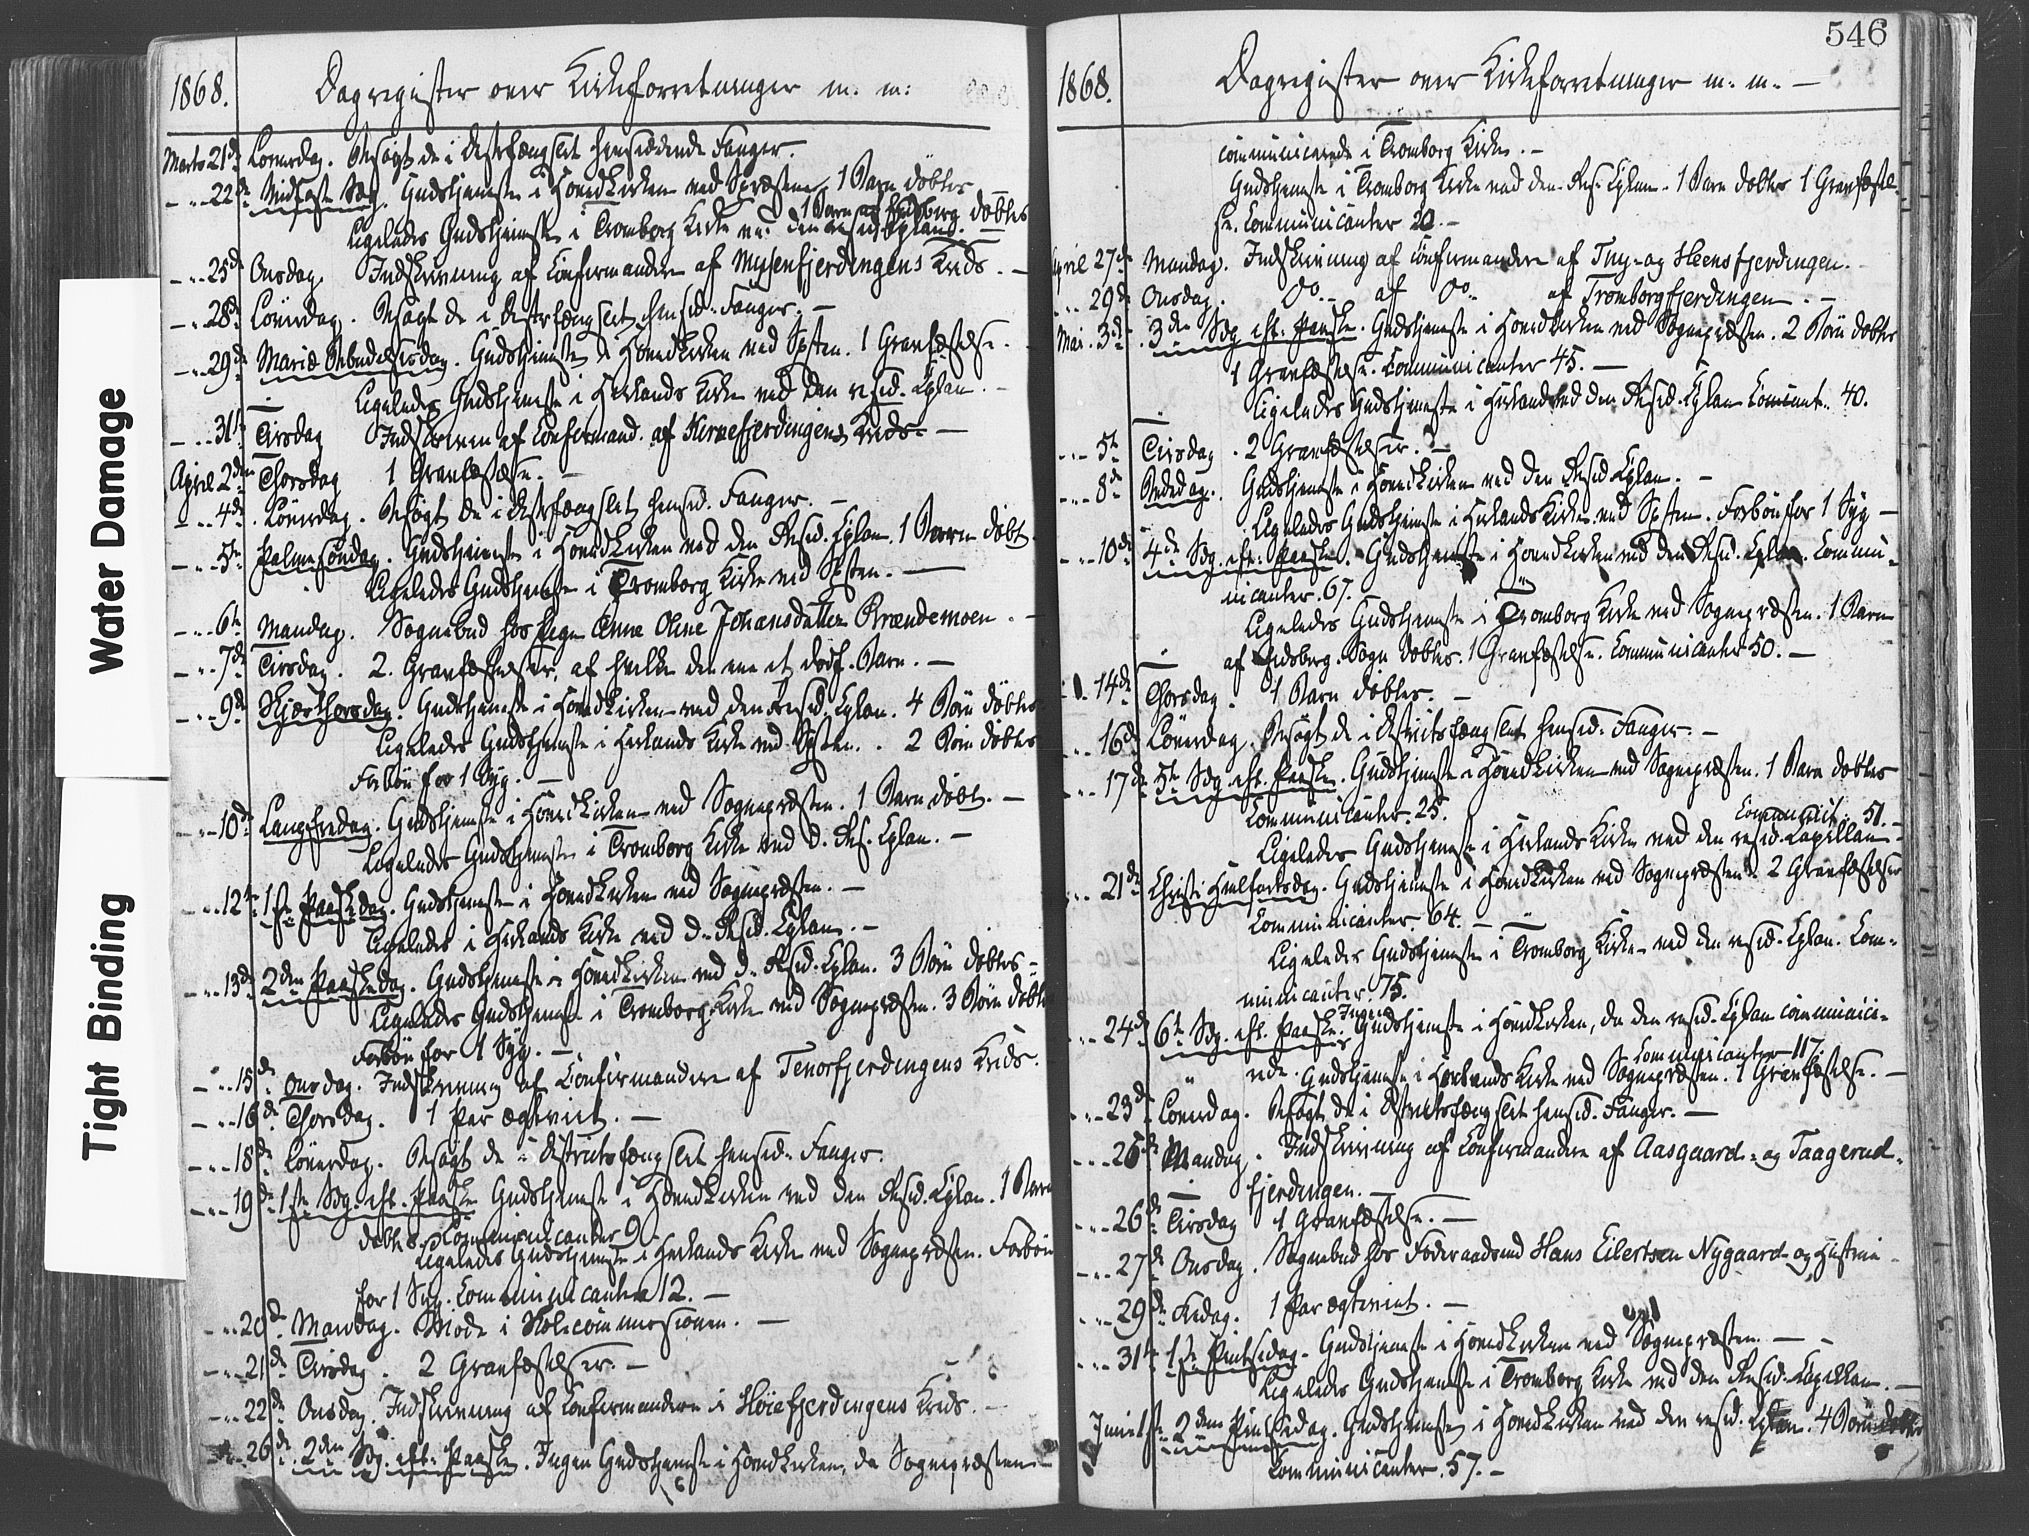 Water Damage
Tight Binding
1868. Dagregister over Kirkeforretninger m. m:
Marts 21de Löverdag. Besögt de i Distrfængslet hensiddende Fanger.
22de Midfaste Sdg. Gudstjeneste i Hovedkirken ved Spræsten, 1 Barn döbtes
1 Barn af Eidsberg döbtes
Ligeledes Gudstjeneste i Tromborg Kirke ved den resid. Cplan.
25de Onsdag. Indskrivning af Confirmander af Mysenfjerdingens Kreds. —
28de Löverdag. Besögt de i Distrfængslet hensid. Fanger. —
29de Mariæ Bebudelsesdag. Gudstjeneste i Hovedkirken ved Spsten. 1 Gravfæstelse.
Ligeledes Gudstjeneste i Herlands Kirke ved den resid. Cplan.
31te Tirsdag Indskriven af Confirmand. af Hernefjerdingens Kreds. —
April 2den Thorsdag 1 Gravfæstelse. —
4de Löverdag. Besögt de i Distrfængslet hensid. Fanger. —
5te Palmesöndag. Gudstjeneste i Hovedkirken ved den Resid. Cplan. 1 Barn döbt.
Ligeledes Gudstjeneste i Tromborg Kirke ved Spsten. —
6te Mandag. Sognebud hos Pigen Anne Oline Johansdatter Brændemoen. —
7de Tirsdag. 2 Gravfæstelser, af hvilke den ene et dödf. Barn. —
9de Skjærthorsdag. Gudstjeneste i Hovedkirken ved den Resid. Cplan. 4 Börn döbtes
Ligeledes Gudstjeneste i Herlands Kirke ved Spsten. 2 Börn döbtes
Forbön for 1 Syg. —
10de Langfredag. Gudstjeneste i Hovedkirken ved Sognepræsten. 1 Barn döbt. —
Ligeledes Gudstjeneste i Tromborg Kirke ved d. Res. Cplan. —
12te 1ste Paaskedag. Gudstjeneste i Hovedkirken ved Sognepræsten. —
Ligeledes i Herlands Kirke ved d. Resid. Cplan. —
13de 2den Paaskedag. Gudstjeneste i Hovedkirken ved d. Resid. Cplan. 3 Börn döbtes —
Ligeledes Gudstjeneste i Tromborg Kirke ved Sognepræsten. 3 Börn döbtes
Forbön for 1 Syg. —
15de Onsdag. Indskrivning af Confirmandere af Tenorfjerdingens Kreds.
16de Thorsdag. 1 Par ægteviet. —
18de Löverdag. Besögt de i Districtsfængslet hensid. Fanger.
19de 1ste Sdg. eft. Paaske Gudstjeneste i Hovedkirken ved den Resid. Cplan. 1 Barn
döbtes. Communicanter 9.
Ligeledes Gudstjeneste i Herlands Kirke ved Sognepræsten. Forbön
for 1 Syg. Communicanter 12. —
20de Mandag. Möde i Skolecommissionen. —
21de Tirsdag. 2 Gravfæstelser. —
22de Onsdag. Indskrivning af Confirmandere i Höiefjerdingens Kreds.
26de 2den Sdg. eft. Paaske. Ingen Gudstjeneste i Hovedkirken, da Sognepræsten
546
1868. Dagregister over Kirkeforretninger m. m. —
communicerede i Tromborg Kirke. —
Gudstjeneste i Tromborg Kirke ved den Res. Cplan. 1 Barn döbtes 1 Gravfæstel-
se. Communicanter 20. —
April 27de Mandag. Indskrivning af Confirmandere af Thy- og Heensfjerdingen.
29de Onsdag. Do af Do af Tromborgfjerdingen. —
Mai 3de 3die Sdg. eft. Paaske. Gudstjeneste i Hovedkirken ved Sognepræsten. 2 Börn döbtes
1 Gravfæstelse. Communicanter 45. —
Ligeledes Gudstjeneste i Herland ved den Resid. Cplan Comcunt. 40.
5te Tirsdag. 2 Gravfæstelser. —
8de Bededag. Gudstjeneste i Hovedkirken ved den Resid Cplan. —
Ligeledes Gudstjeneste i Herlands Kirke ved Spsten. Forbön for 1 Syg —
10de 4de Sdg. eft. Paaske. Gudstjeneste i Hovedkirken ved den Resid. Cplan. Commu-
nicanter 67.
Ligeledes Gudstjeneste i Tromborg Kirke ved Sognepræsten. 1 Barn
af Eidsberg Sogn döbtes. 1 Gravfæstelse. Communicanter 50. —
14de Thorsdag. 1 Barn döbtes. —
16de Löverdag. Besögt de i Districtsfængslet hensid. Fanger. —
17de 5te Sdg. eft. Paaske. Gudstjeneste i Hovedkirken ved Sognepræsten. 1 Barn döbtes
Communicanter 25. Communict. 51. —
Ligeledes Gudstjeneste i Herlands Kirke ved den resid. Capellan —
21de Christi Himlfartsdag. Gudstjeneste i Hovedkirken ved Sognepræsten. 2 Gravfæstelser
Communicanter 64. —
Ligeledes Gudstjeneste i Tromborg Kirke ved den resid. Cplan. Com-
municanter 75.
24de 6te Sdg. eft. Paaske. Ingen Gudstjeneste i Hovedkirken, da den resid. Cplan communice-
rede. Communicanter 117.
Gudstjeneste i Herlands Kirke ved Sognepræsten. 1 Gravfæstelse. —
23de Löverdag. Besögt de i Districtsfængslet hensid. Fanger. —
25de Mandag. Indskrivning af Confirmandere af Aasgaard- og Taagerud-
fjerdingen. —
26de Tirsdag 1 Gravfæstelse. —
27de Onsdag. Sognebud hos Föderaadsmd Hans Eilertsen Nygaard og Hustru
29de Fredag. 1 Par ægteviet. —
31te 1ste Pintsedag. Gudstjeneste i Hovedkirken ved Sognepræsten. —
Ligeledes Gudstjeneste i Tromborg Kirke ved den Resid. Capellan. —
Juni 1ste 2den Pintsedag. Gudstjeneste i Hovedkirken ved den resid. Cplan. 4 Börn döbtes
Communicanter 57. —